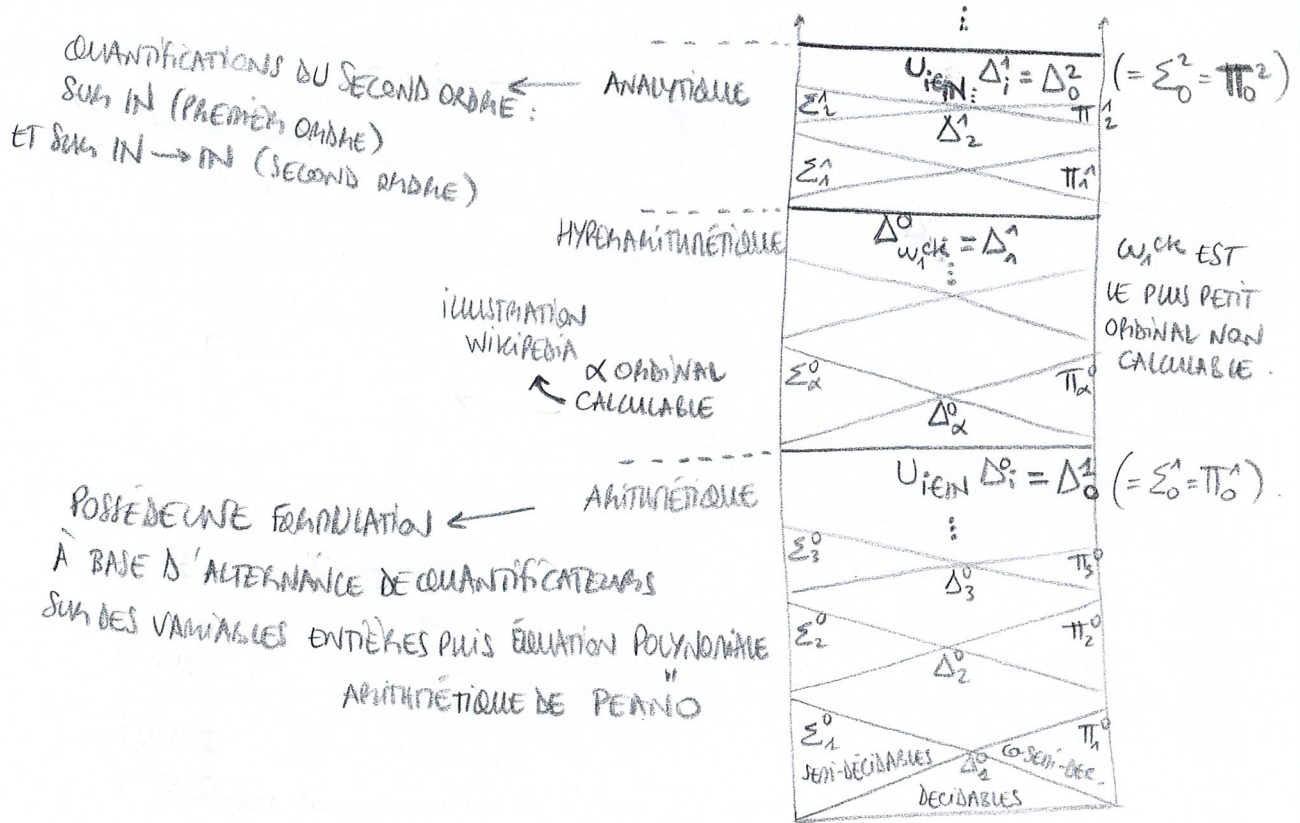 ⋮
QUANTIFICATIONS DU SECOND ORDRE :
SUR IN (PREMIER ORDRE)
ET SUR IN → IN (SECOND ORDRE)
← ANALYTIQUE
U_{i∈IN} Δ^1_i = Δ^2_0 (= Σ^2_0 = Π^2_0)
⋮
Σ^1_2 Δ^1_2 Π^1_2
Σ^1_1 Π^1_1
HYPERARITHMÉTIQUE
Δ^0_{ω_1^{CK}} = Δ^1_1
⋮
ω_1^{CK} EST
LE PLUS PETIT
ORDINAL NON
CALCULABLE.
ILLUSTRATION
WIKIPEDIA
α ORDINAL
CALCULABLE
Σ^0_α Δ^0_α Π^0_α
ARITHMÉTIQUE
U_{i∈IN} Δ^0_i = Δ^1_0 (= Σ^1_0 = Π^1_0).
⋮
POSSÈDE UNE FORMULATION ←
À BASE D'ALTERNANCE DE QUANTIFICATEURS
SUR DES VARIABLES ENTIÈRES PUIS ÉQUATION POLYNOMIALE
"
ARITHMÉTIQUE DE PEANO
Σ^0_3 Δ^0_3 Π^0_3
Σ^0_2 Δ^0_2 Π^0_2
Σ^0_1 Δ^0_1 Π^0_1
SEMI-DÉCIDABLES CO-SEMI-DÉC.
DÉCIDABLES